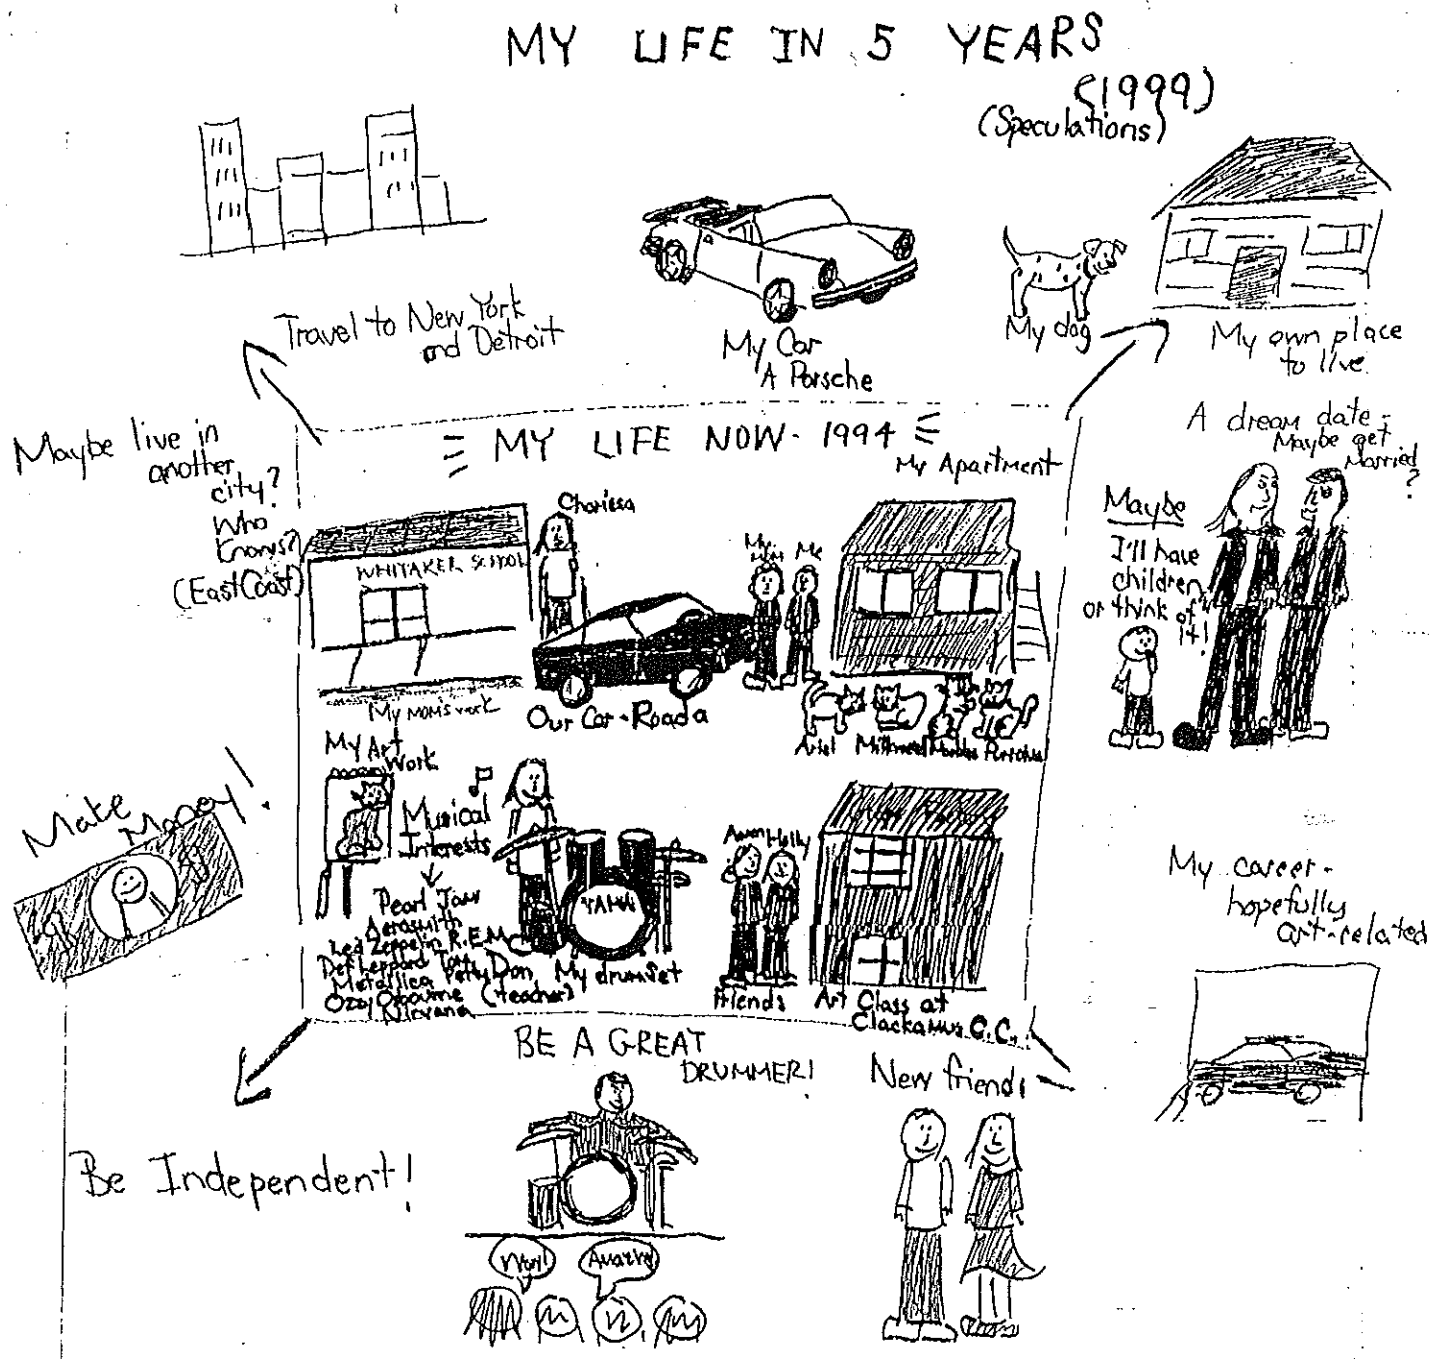 MY LIFE IN 5 YEARS
(1999)
(Speculations)
Travel to New York
and Detroit
My Car
A Porsche
My dog
My own place
to live.
Maybe live in
another
city?
Who
Knows?
(East Coast)
A dream date-
Maybe get
Married
?
Maybe
I'll have
children
or think of
it!
MY LIFE NOW - 1994
My Apartment
Charissa
WHITAKER SCHOOL
My Mom
Me
My mom's work
Our Car - Roada
Ariel
My Art
Work
Musical
Interests
Pearl Jam
Aerosmith
Led Zeppelin R.E.M.
Def Leppard Tom
Metallica Petty
Ozzy Osbourne
Nirvana
Don
(teacher)
YAMA
My drumset
Holly
friends
Art Class at
Clackamus C.C.
Make
Money!
My career-
hopefully
art-related
Be Independent!
BE A GREAT
DRUMMER!
Wow!
New friends